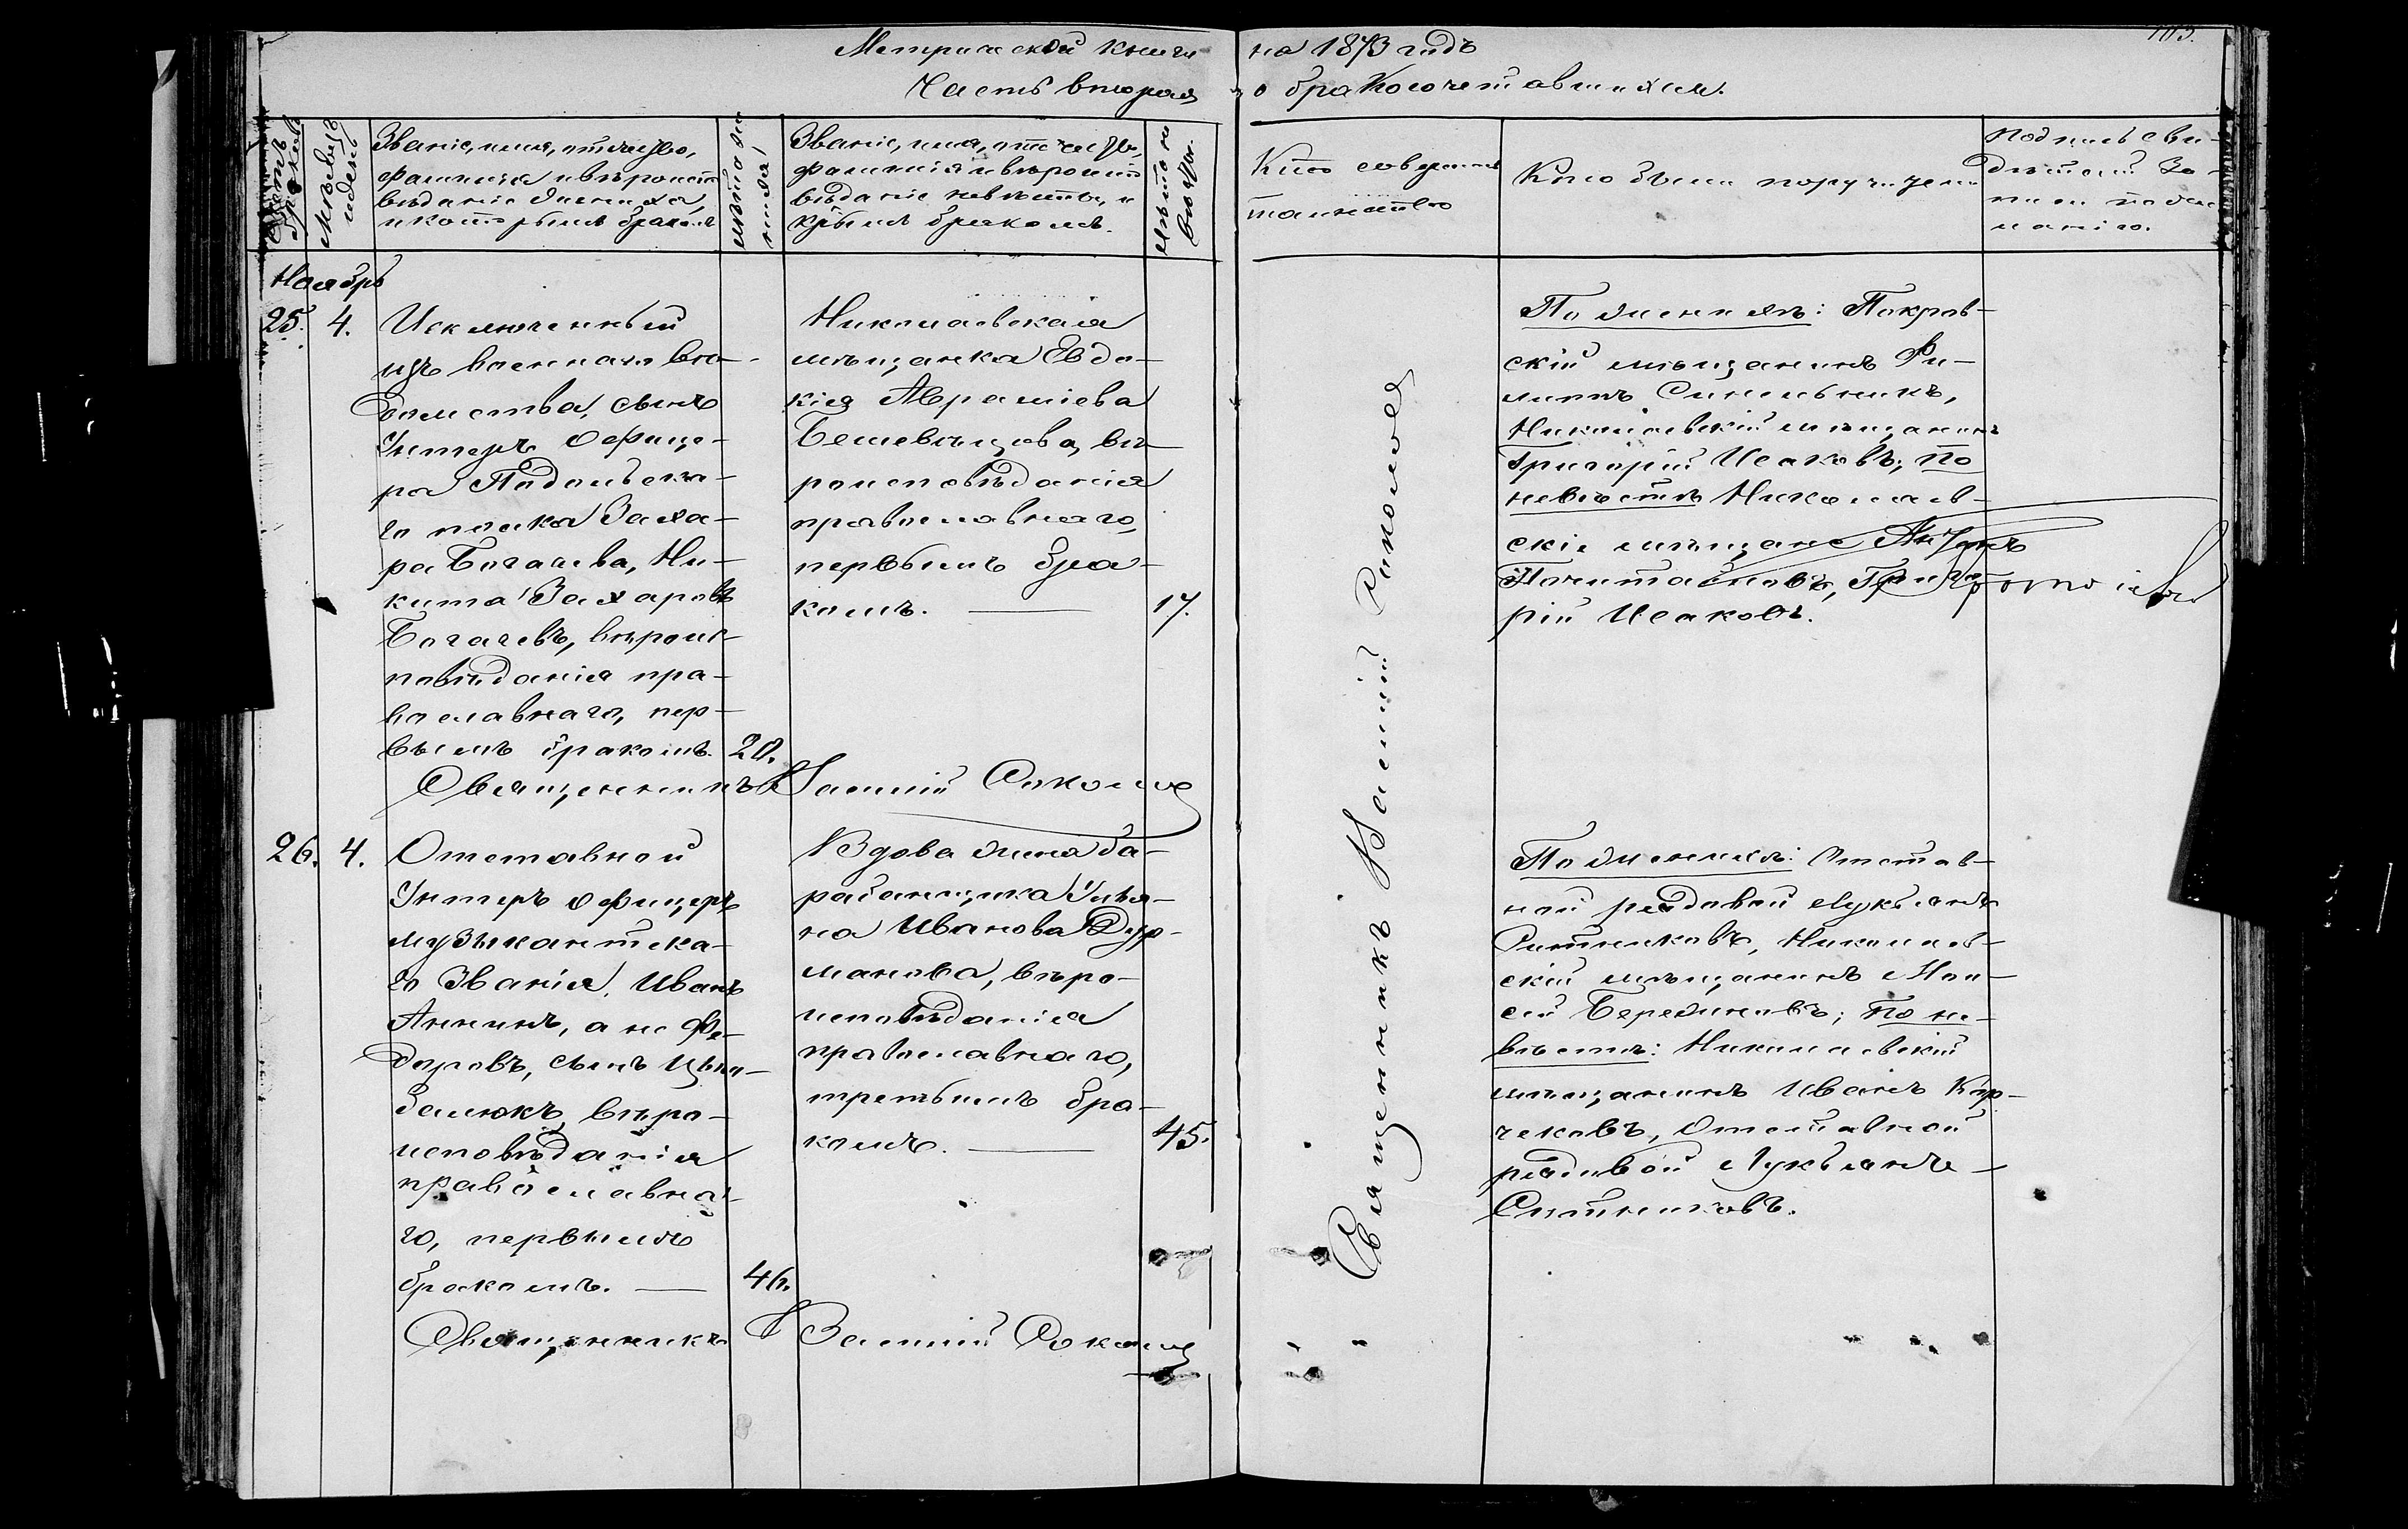 Метрической книги на 1873 годъ
Часть вторая, о бракосочетавшихся.
Счетъ браковъ
Мѣсяцъ и день
Званіе, имя, отчество,
фамилія и вѣроиспо
вѣданіе жениха,
и которымъ бракомъ
Лѣта же
ниха
Званіе, имя, отчество,
фамилія и вѣроиспо
вѣданіе невѣсты, и
кѣмъ бракомъ.
Лѣта не
вѣсты.
Кто совершалъ
таинство
Кто были поручители
Подпись сви-
дѣтелей за-
писи по же-
ланію.
Ноябрь
25. 4.
Исключенный
изъ военнаго вѣ-
домства, сынъ
Унтеръ офице-
ра Подольска-
го полка Заха-
ра Богачева, Ни-
кита Захаровъ
Богачевъ, вѣроис-
повѣданія пра-
вославнаго, пер-
вымъ бракомъ. 20.
Николаевская
мѣщанка Евдо-
кія Аврамiева
вѣ-
роисповѣданія
православнаго,
первымъ бра-
комъ. — 17.
Священникъ Василій Соколов
По женихѣ: Покров-
скій мѣщанинъ Фи-
липпъ Синельникъ,
Николаевскій мѣщанинъ
Григорій Исаковъ; по
невѣстѣ Николаев-
скіе мѣщане
Григо
рій Исаковъ.
26. 4.
Отставной
Унтеръ офицеръ
музыкантска-
го званія, Иванъ
Аннинъ, а не Фе-
доровъ, сынъ
вѣро-
исповѣданія
православна-
го, первымъ
бракомъ. — 46.
Вдова жена ба-
рабанщика Улья-
на Иванова Дур-
манова, вѣро-
исповѣданія
православнаго,
третьимъ бра-
комъ. — 45.
Священникъ Василій Соколов
По женихѣ: Отстав-
ной рядовой Лукьянъ
Ситниковъ, Николаев-
скій мѣщанинъ Мои-
сей Бережновъ; По не-
вѣстѣ: Николаевскій
мѣщанинъ Иванъ
Отставной
рядовой Лукьянъ
Ситниковъ.
Священникъ Василій Соколов